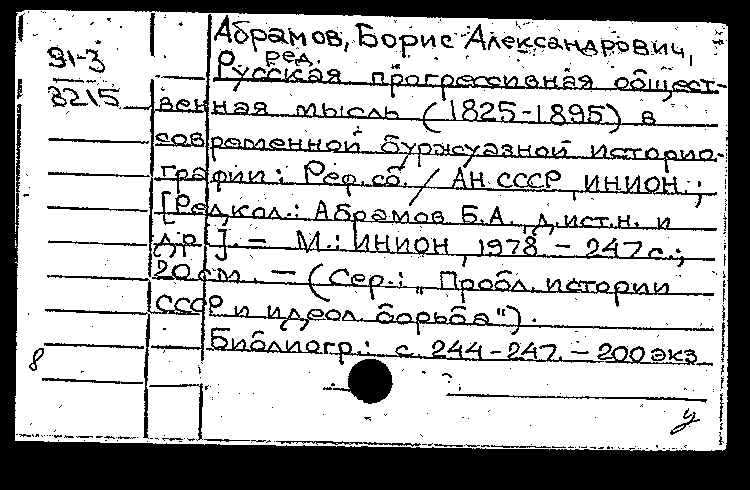 Абрамов, Борис Александрович,
ред.
91-3
3215
Русская прогрессивная общест-
венная мысль (1825-1895) в
современной буржуазной историо-
графии: Реф. сб. / АН СССР, ИНИОН.;
[Редкол.: Абрамов Б.А., д.ист.н. и
др.]. – М.: ИНИОН, 1978 – 247 с.;
20 см. – (Сер.: "Пробл. истории
СССР и идеол. борьба").
Библиогр.: с. 244-247. – 200 экз
8
у